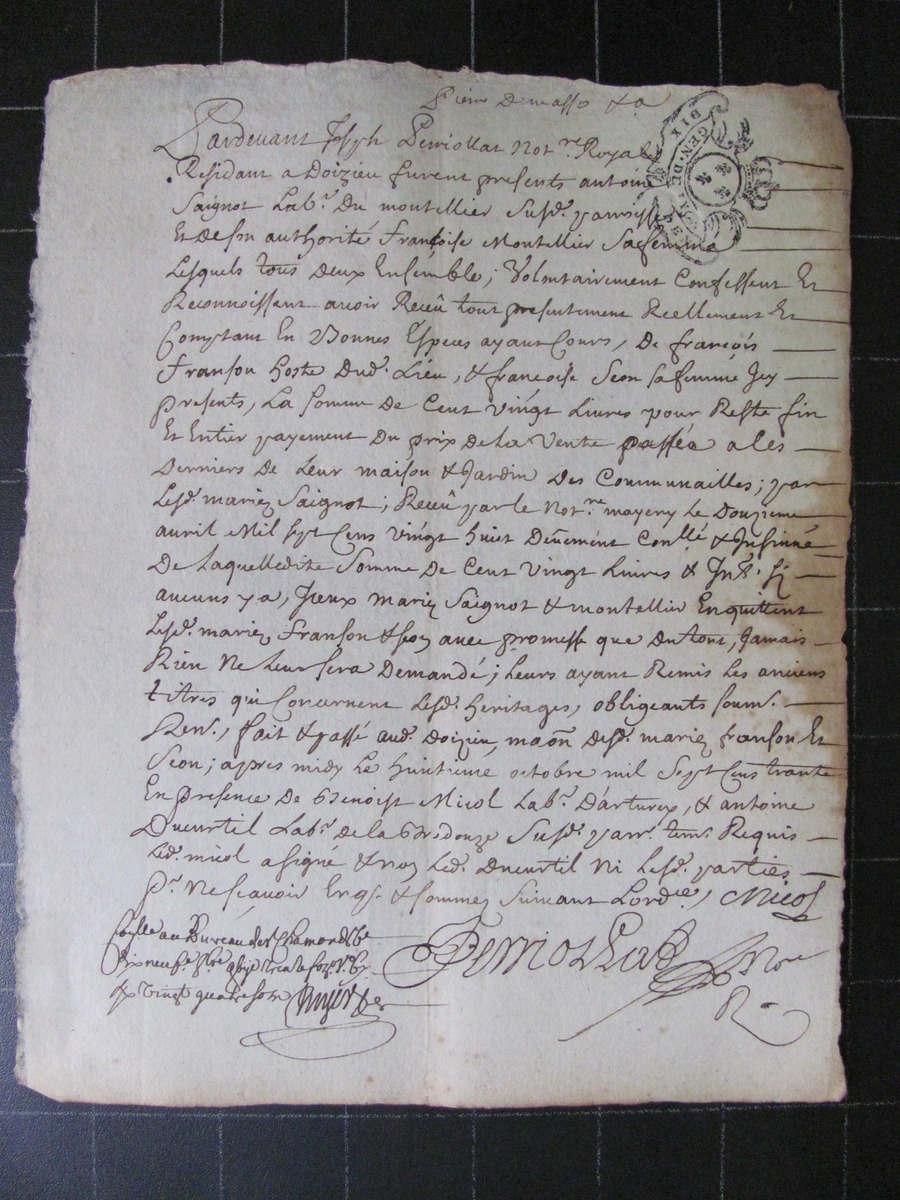 Pardevant Joseph Perriollat Not.re Royal
Residant a Doizieu furent presents antoine
Saignot Lab.r Du montellier Susd. parroisse
Et De son authorité Françoise Montellier Sa femme
Lesquels tous deux Ensemble, Volontairement Confessent Et
Reconnoissent avoir Receü tout presentement Reellement Et
Comptant En Bonnes Especes ayant Cours, De françois
Franson hoste Dud. Lieu, & francoise Seon Sa femme Jcy
presents, La somme De Cent vingt Livres pour Reste fin
Et Entier payement Du prix De La Vente passée a Ces
Derniers De Leur maison & Jardin Des Communailles; par
Lesd. mariez Saignot; Receü par le Not.re mayeny Le Douzieme
avril Mil sept Cens vingt huict Deüement Con.llé & Insinué
De Laquelle dite Somme De Cent Vingt Livres & Int.ts Si
aucuns y a, Jceux mariez Saignot & montellier En quittent
Lesd. mariez Franson & Seon avec promesse que Du tout, Jamais
Rien Ne Leur sera Demandé; Leurs ayant Remis Les anciens
titres qui Concernent Lesd. heritages, obligeants soum.
Ren., fait & passé aud. Doizieu, maōn Desd. mariez franson Et
Seon; apres midy Le huitieme octobre mil Sept Cens trante
En presence De Benoist Micol Lab.r D'arturey, & antoine
Dueurtil Lab.r de la Brodouze Susd. parr. tem. Requis
Led. micol a signé & non Led. Dueurtil Ni Lesd. parties
P.r Ne Scavoir Enq. & sommez Suivant Lord.ce, Micol
au Bureau de St Chamond le
Dix neuf
vingt quatre sols
Perriollat Nore
R
GEN. DE
DIX